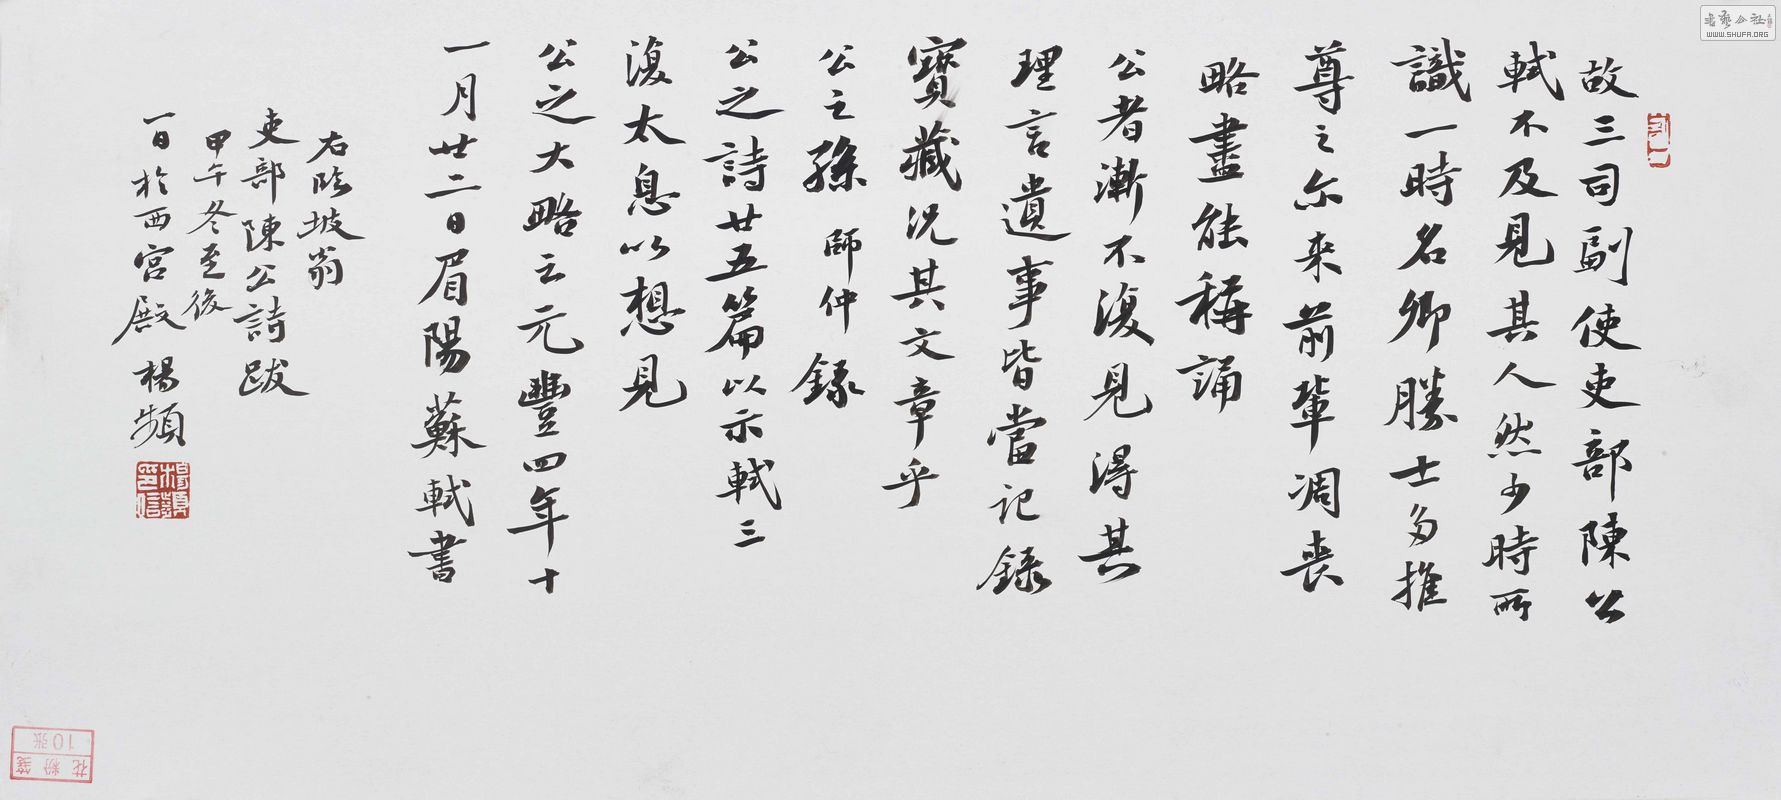 故三司副使吏部陳公
軾不及見其人然少時所
識一時名卿勝士多推
尊之尔来前輩凋喪
略盡能稱誦
公者漸不復見得其
理言遺事皆當記録
寶藏況其文章乎
公之孫師仲録
公之詩廿五篇以示軾三
復太息以想見
公之大略云元豐四年十
一月廿二日眉陽蘇軾書
右臨坡翁
吏部陳公詩跋
甲午冬至後
一日於西宮殿楊頻
楊頻印信
花粉箋
10张
書藝公社
WWW.SHUFA.ORG